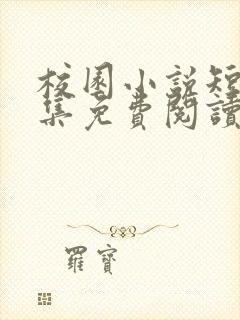 校園小説短
集免費閱讀
羅寶